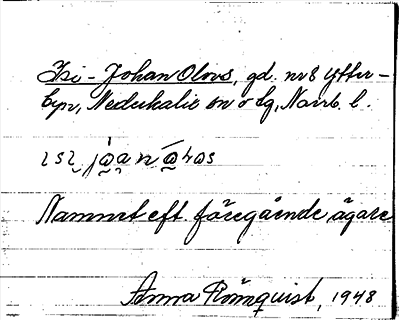 Isi-Johan Olovs, gd. nr 8 Ytter-
byn, Nederkalix sn o lg, Norrb. l.
Namnet eft. föregående ägare
Anna Rönnquist, 1948